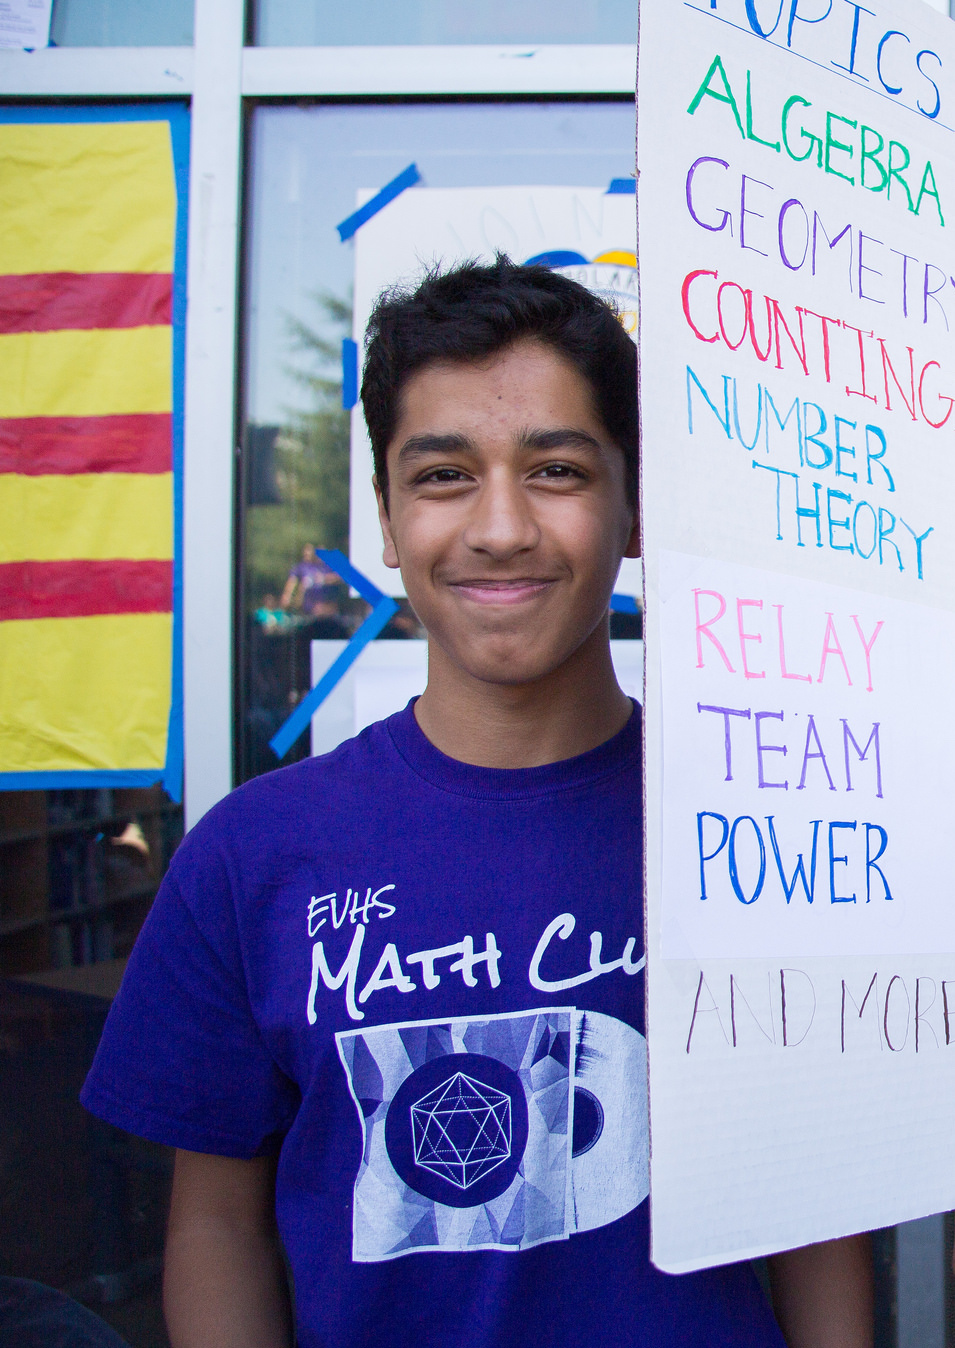 JOIN
TOPICS
ALGEBRA
GEOMETRY
COUNTING
NUMBER
THEORY
RELAY
TEAM
POWER
AND MORE
EVHS
MATH CLU